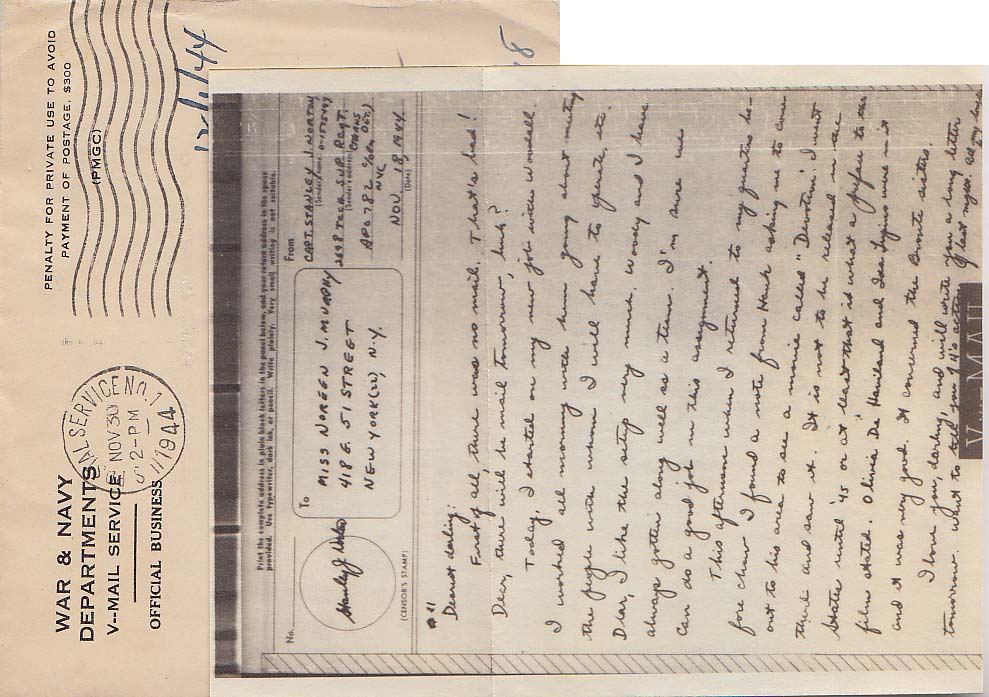 WAR & NAVY
DEPARTMENTS
V--MAIL SERVICE
OFFICIAL BUSINESS
PENALTY FOR PRIVATE USE TO AVOID
PAYMENT OF POSTAGE, $300
(PMGC)
SERVICE NO. 1
NOV 30
2-PM
1944
12/1/44
Print the complete address in plain block letters in the panel below, and your return address in the space
provided. Use typewriter, dark ink, or pencil. Write plainly. Very small writing is not suitable.
No.
(CENSOR'S STAMP)
To
MISS NOREEN J. MURPHY
418 E. 51 STREET
NEW YORK (22), N.Y.
From
CAPT. STANLEY J. NORTON
(Sender's name)
2698 TECH. SUP. REGT.
(Sender's address)
APO 782
NYC
NOV. 18, 1944
(Date)
#1
Dearest darling:
First of all, there was no mail. That's bad!
Dear, there will be mail tomorrow, huh?
Today, I started on my new job with Woodall.
I worked all morning with him going about meeting
the people with whom I will have to operate, etc.
Dear, I like the setup very much. Woody and I have
always gotten along well as a team. I'm sure we
can do a good job in this assignment.
This afternoon when I returned to my quarters be-
fore chow I found a note from Hank asking me to come
out to his area to see a movie called "Devotion". I went
there and saw it. It is not to be released in the
states until '45 or at least that is what a preface to the
film stated. Olivia De Haviland and Ida Lupino were in it
and it was very good. It concerned the Bronte sisters.
I love you, darling, and will write you a long letter
tomorrow. Want to tell you of
last night. All my love
V-MAIL